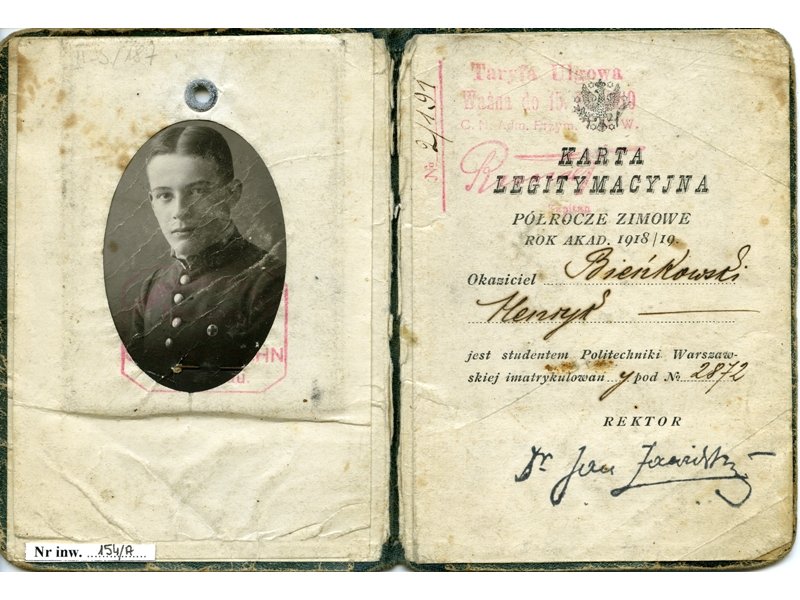 II-3/187
HN
Nr inw. 154/A
Taryfa Ulgowa
Ważna do 15.
Nº 2/191
KARTA
LEGITYMACYJNA
PÓŁROCZE ZIMOWE
ROK AKAD. 1918/19.
Okaziciel Bieńkowski
Henryk
jest studentem Politechniki Warszaw-
skiej imatrykulowan y pod № 2872
REKTOR
Dr Jan Zawidzki